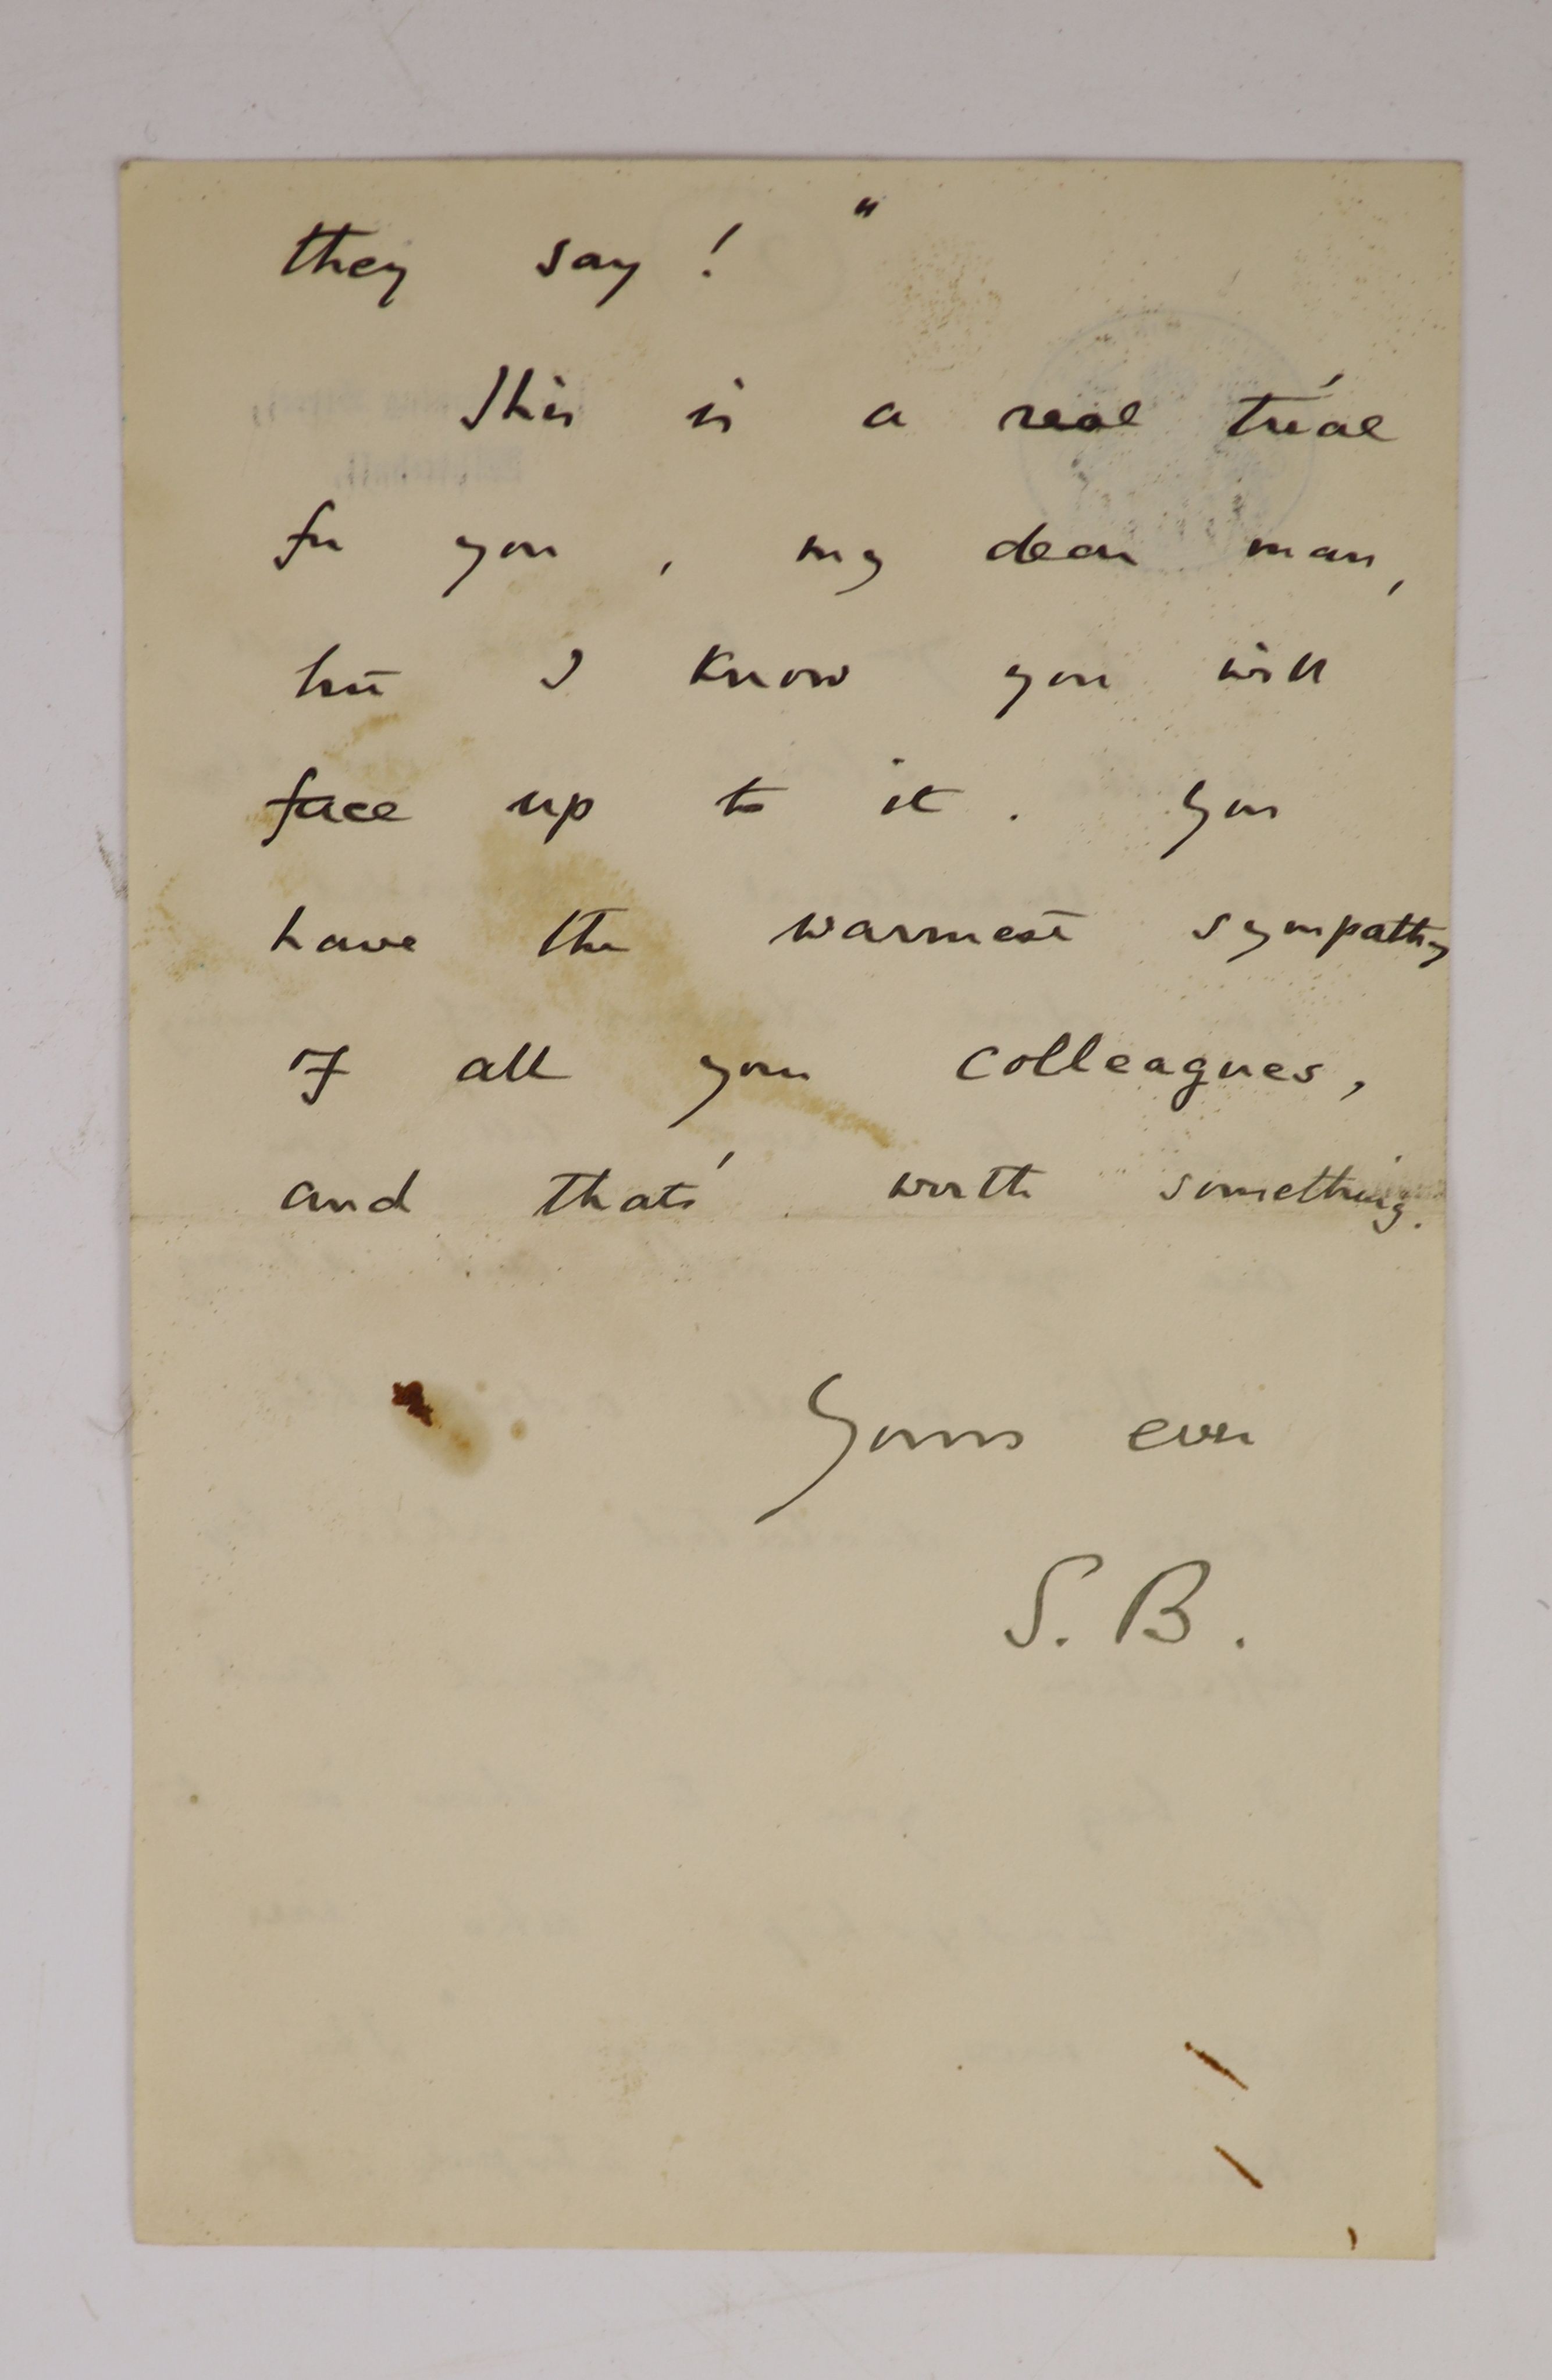 they say!"
This is a real trial
for you, my dear man,
but I know you will
face up to it. You
have the warmest sympathy
of all your colleagues,
and that's worth something.
Yours ever
S. B.